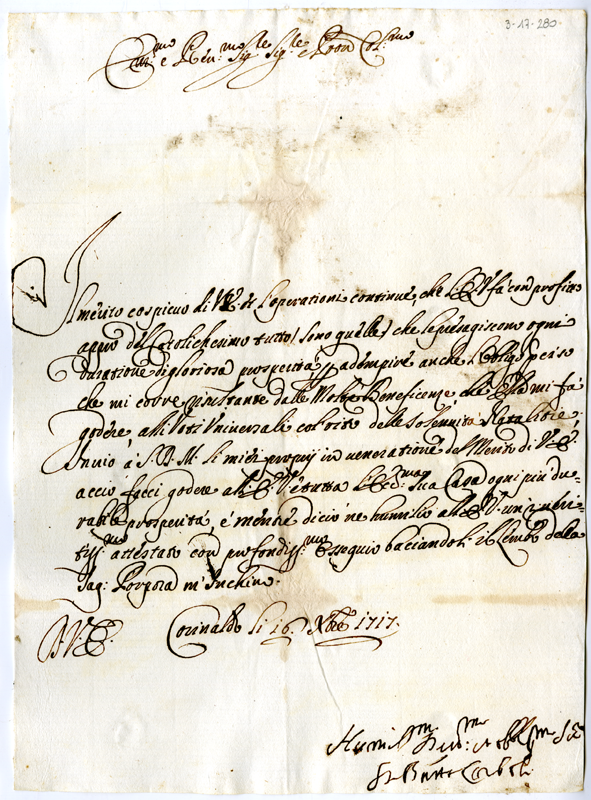 3-17-280-
Em.mo e Reu.mo Sig.re Sig.re e Pron Col.mo
Il merito cospicuo di V.E. et l'operationi continue, che l'E.V. fa con profitto
del Catolichesimo tutto, sono quelle, che le presagiscono ogni
duratione di gloriosa prosperità, adempire anche l'obligo preciso
che mi corre rinstante dalle Molte Beneficenze che l'E. mi fà
godere, alli Voti Vniversali col rito delle Solennità Natalitie
Inuio à S.D.M. li miei proprij in ueneratione del Merito di V.E.
accio facci godere all'E.V. e tutta l'Ecc.ma sua Casa ogni più du-
rabile prosperità, e mentre di ciò ne humilio all'E.V. un riueren-
tiss.mo attestato con profondiss.mo ossequio baciandoli il lembo della
Sag: Porpora m'Inchino.
D.V.E. Corinaldo li 16. Xbre 1717.
Humiliss.mo Diu.mo et Obblig.mo